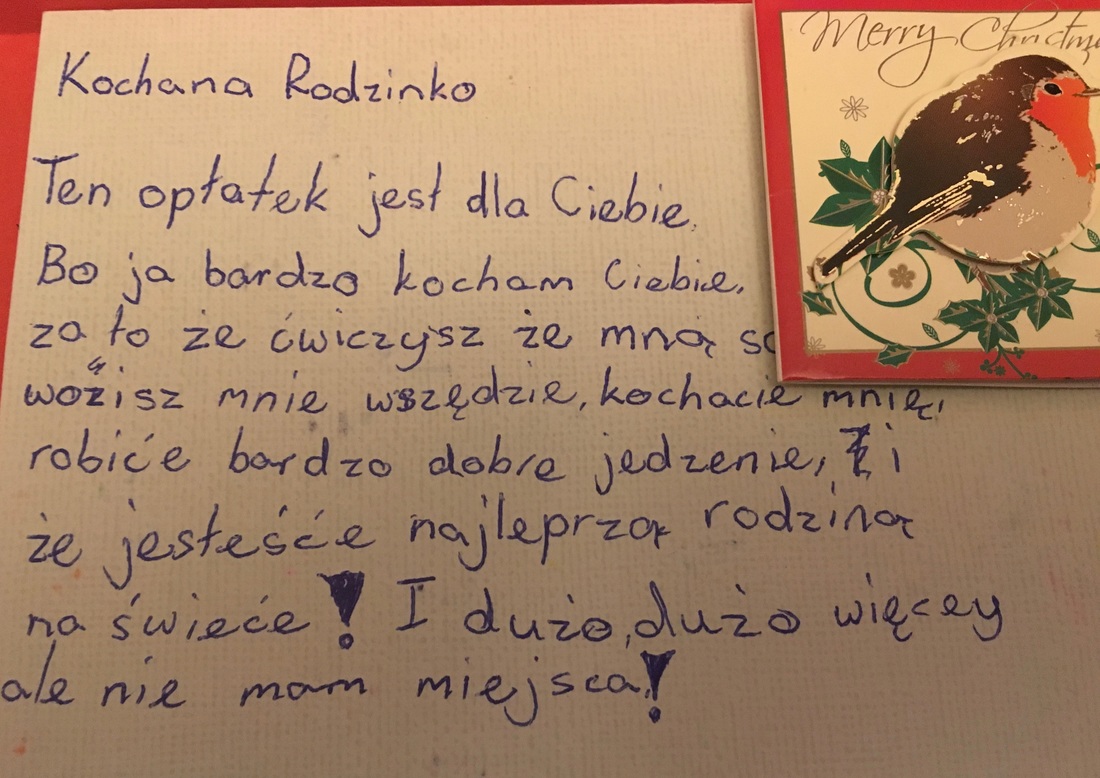 Kochana Rodzinko
Ten opłatek jest dla Ciebie.
Bo ja bardzo kocham Ciebie,
za to że ćwiczysz że mną
woźisz mnie wszędzie, kochacie mnię,
robiće bardzo dobre jedzenie, i
że jesteśće najleprzą rodziną
na świeće! I dużo, dużo więcey
ale nie mam miejsca!
Merry